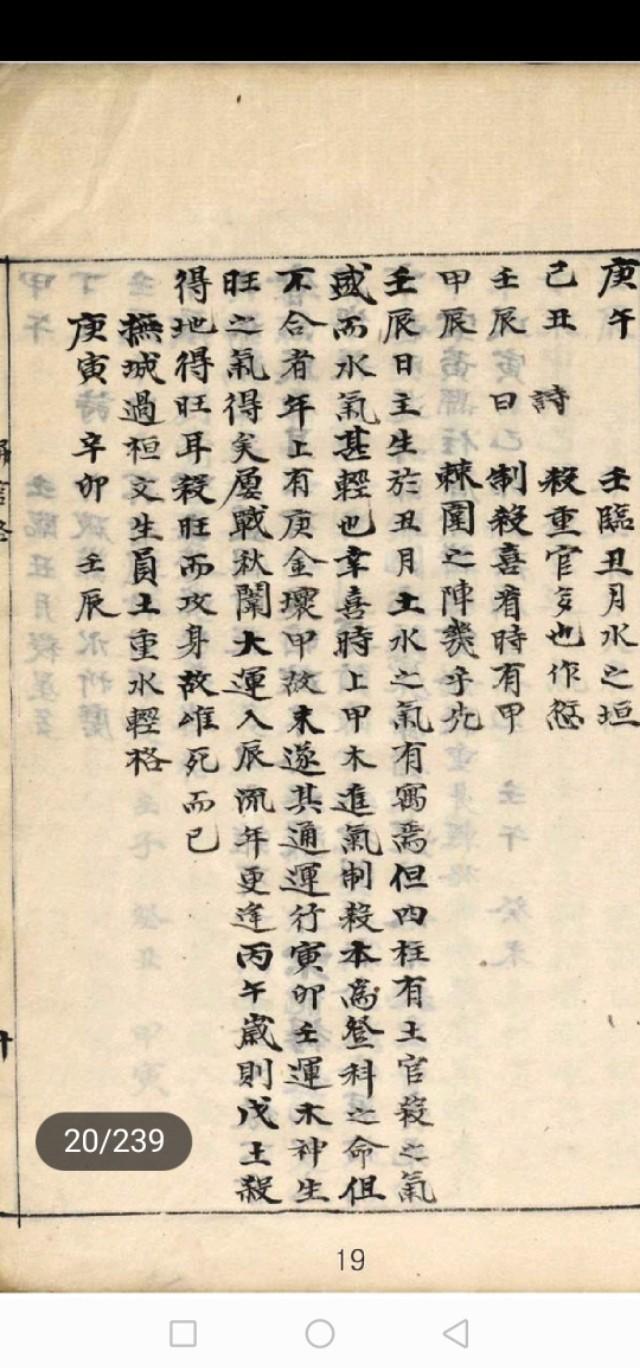 庚午 壬臨丑月水之垣
己丑 詩 殺重官多也作愆
壬辰日 制殺喜有時有甲
甲辰 棘圍之陣幾乎先
壬辰日主生於丑月土水之氣有寓焉但四柱有土官殺之氣
盛而水氣甚輕也幸喜時上甲木進氣制殺本為登科之命但
不合者年上有庚金壞甲故未遂其通運行寅卯壬運木神生
旺之氣得矣屢戰秋闈大運入辰流年更逢丙午歲則戊土殺
得地得旺耳殺旺而攻身故唯死而已
撫城過桓文生員土重水輕格
庚寅 辛卯 壬辰
20/239
19